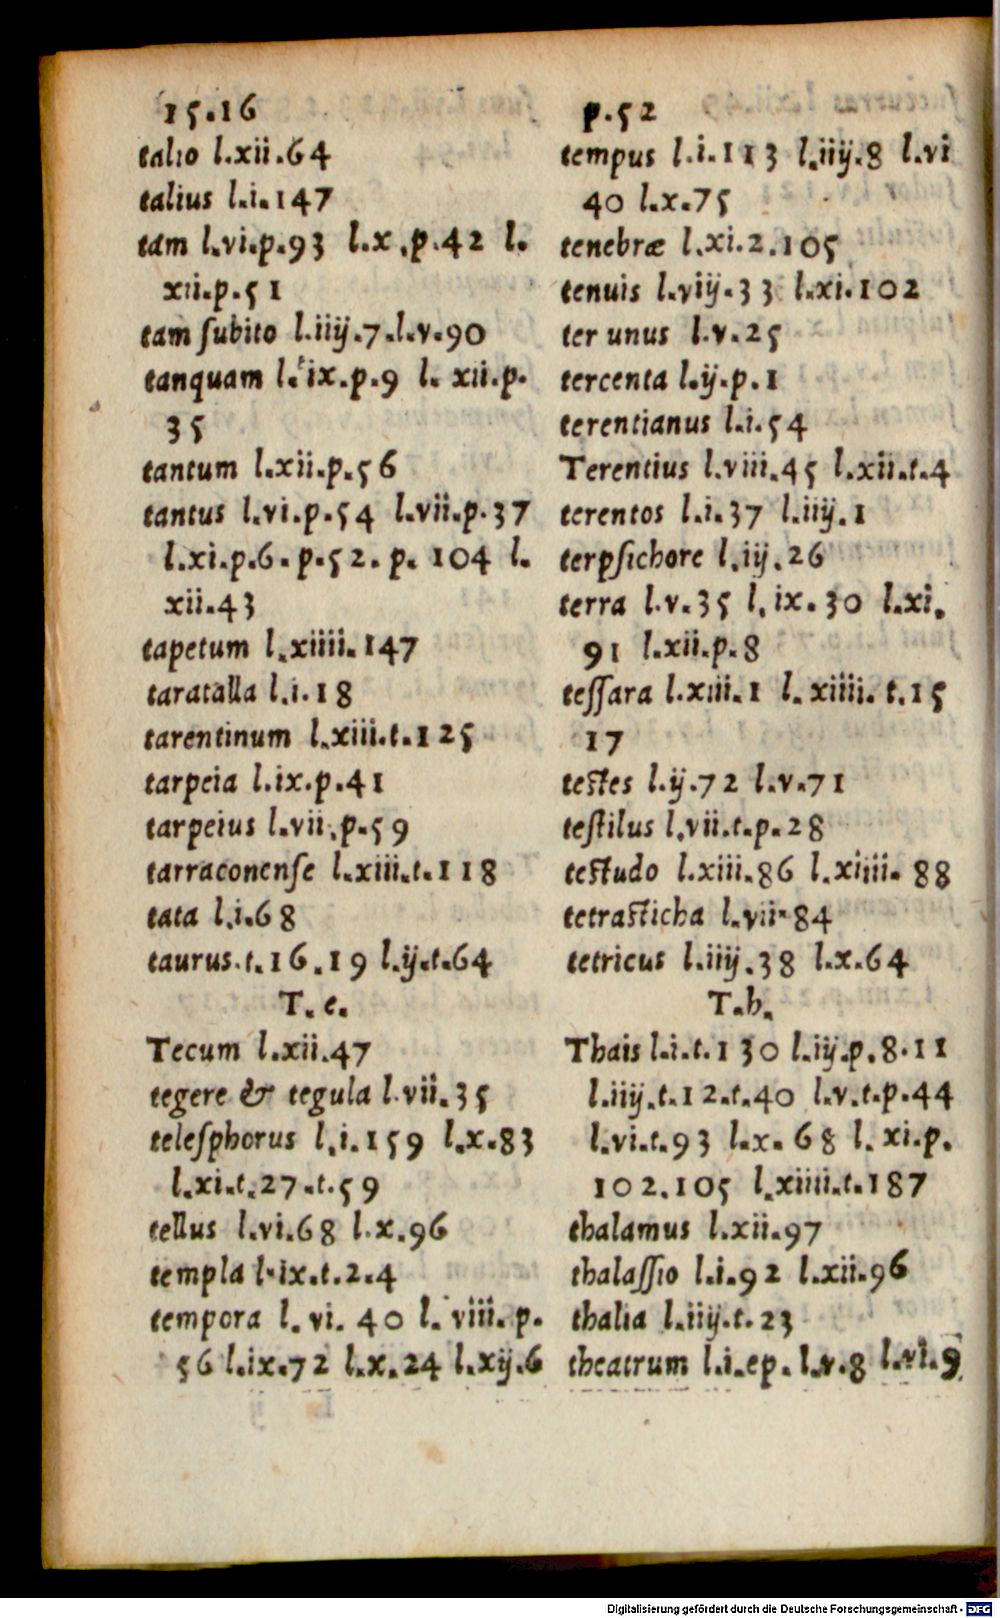 15.16
talio l.xii.64
talius l.i.147
tam l.vi.p.93 l.x.p.42 l.
xii.p.51
tam ſubito l.iiij.7.l.v.90
tanquam l. ix.p.9 l. xii.p.
35
tantum l.xii.p.56
tantus l.vi.p.54 l.vii.p.37
l.xi.p.6.p.52.p.104 l.
xii.43
tapetum l.xiiii.147
taratalla l.i.18
tarentinum l.xiii.t.125
tarpeia l.ix.p.41
tarpeius l.vii.p.59
tarraconenſe l.xiii.t.118
tata l.i.68
taurus.t.16.19 l.ij.t.64
T. e.
Tecum l.xii.47
tegere & tegula l.vii.35
teleſphorus l.i.159 l.x.83
l.xi.t.27.t.59
tellus l.vi.68 l.x.96
templa l.ix.t.2.4
tempora l. vi. 40 l. viii. p.
56 l.ix.72 l.x.24 l.xij.6
p.52
tempus l.i.113 l.iiij.8 l.vi
40 l.x.75
tenebræ l.xi.2.105
tenuis l.viij.33 l.xi.102
ter unus l.v.25
tercenta l.ij.p.1
terentianus l.i.54
Terentius l.viii.45 l.xii.t.4
terentos l.i.37 l.iiij.1
terpſichore l.iij.26
terra l.v.35 l.ix.30 l.xi.
91 l.xii.p.8
teſſara l.xiii.1 l. xiiii. t.15
17
teſtes l.ij.72 l.v.71
teſtilus l.vii.t.p.28
teſtudo l.xiii.86 l.xiiii. 88
tetraſticha l.vii.84
tetricus l.iiij.38 l.x.64
T.h.
Thais l.i.t.130 l.iij.p.8.11
l.iiij.t.12.t.40 l.v.t.p.44
l.vi.t.93 l.x. 68 l. xi.p.
102.105 l.xiiii.t.187
thalamus l.xii.97
thalaſſio l.i.92 l.xii.96
thalia l.iiij.t.23
theatrum l.i.ep. l.v.8 l.vi.9
Digitalisierung gefördert durch die Deutsche Forschungsgemeinschaft - DFG